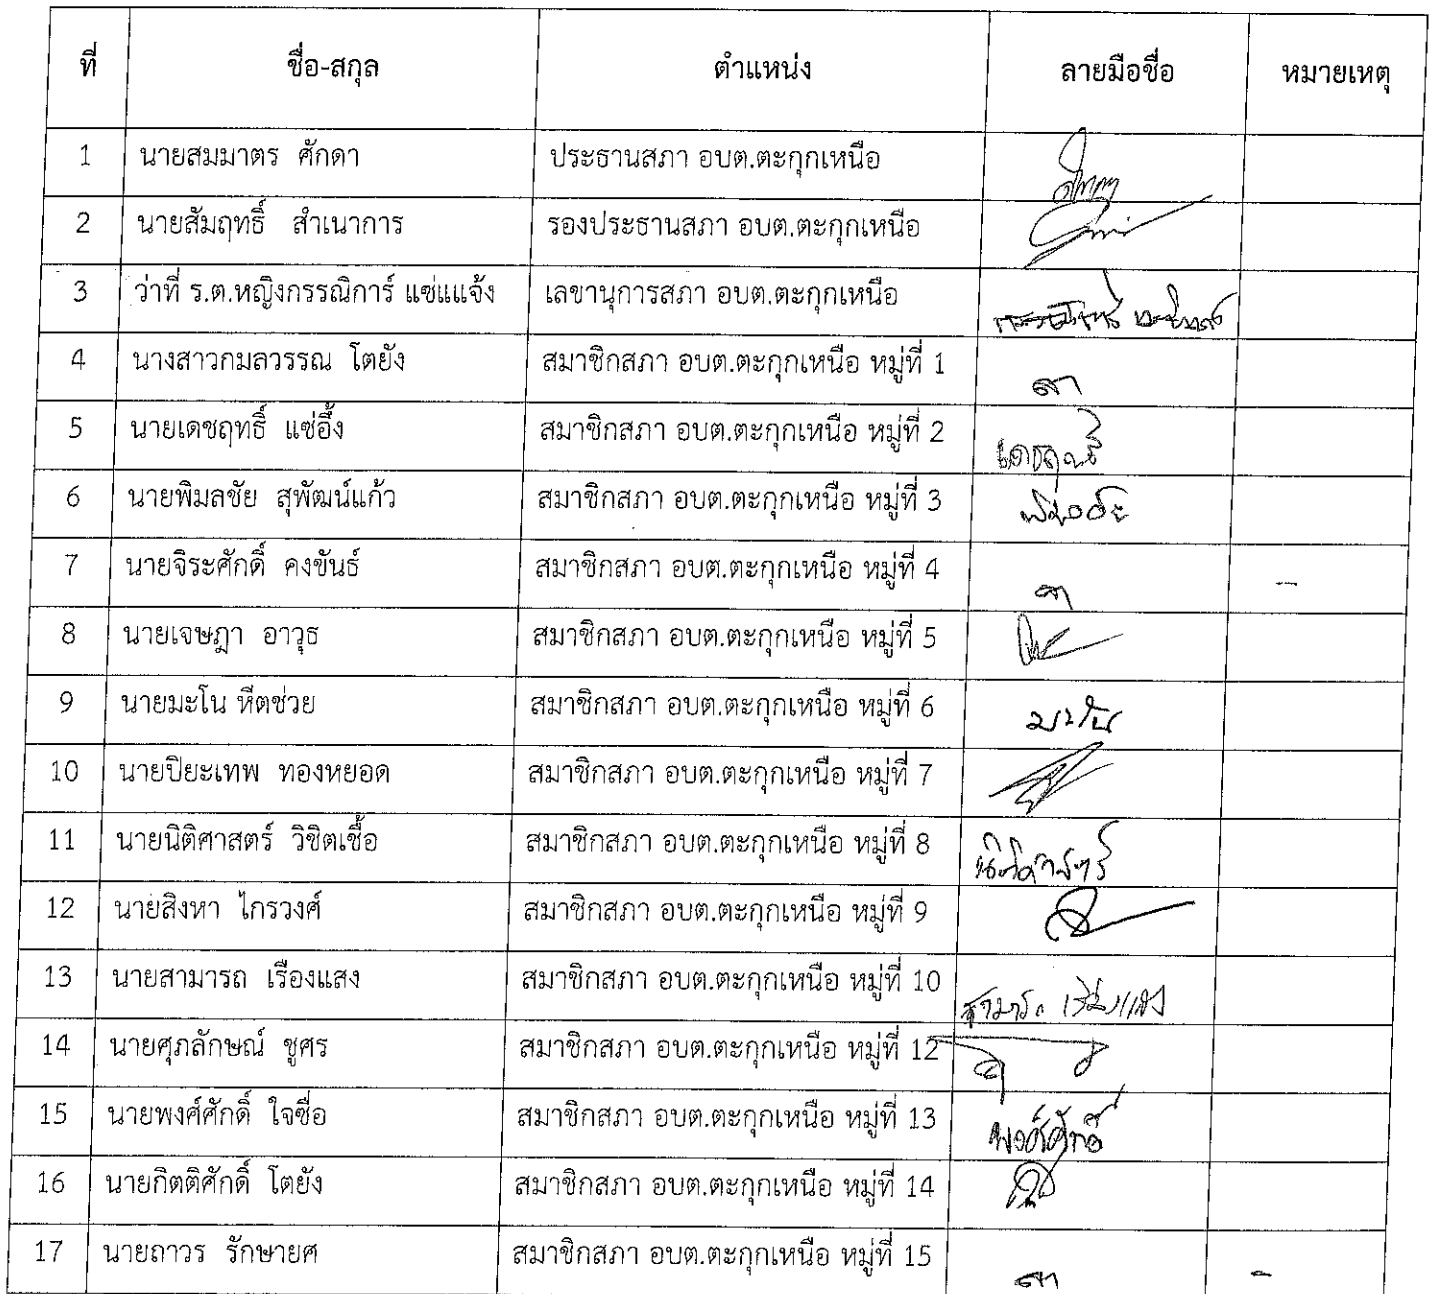 ที่ ชื่อ-สกุล ตำแหน่ง ลายมือชื่อ หมายเหตุ
1 นายสมมาตร ศักดา ประธานสภา อบต.ตะกุกเหนือ
2 นายสัมฤทธิ์ สำเนาการ รองประธานสภา อบต.ตะกุกเหนือ
3 ว่าที่ ร.ต.หญิงกรรณิการ์ แซ่แแจ้ง เลขานุการสภา อบต.ตะกุกเหนือ
4 นางสาวกมลวรรณ โตยัง สมาชิกสภา อบต.ตะกุกเหนือ หมู่ที่ 1 ลา
5 นายเดชฤทธิ์ แซ่อึ้ง สมาชิกสภา อบต.ตะกุกเหนือ หมู่ที่ 2 เดชฤทธิ์
6 นายพิมลชัย สุพัฒน์แก้ว สมาชิกสภา อบต.ตะกุกเหนือ หมู่ที่ 3
7 นายจิระศักดิ์ คงขันธ์ สมาชิกสภา อบต.ตะกุกเหนือ หมู่ที่ 4 ลา -
8 นายเจษฎา อาวุธ สมาชิกสภา อบต.ตะกุกเหนือ หมู่ที่ 5
9 นายมะโน หีตช่วย สมาชิกสภา อบต.ตะกุกเหนือ หมู่ที่ 6 มะโน
10 นายปิยะเทพ ทองหยอด สมาชิกสภา อบต.ตะกุกเหนือ หมู่ที่ 7
11 นายนิติศาสตร์ วิชิตเชื้อ สมาชิกสภา อบต.ตะกุกเหนือ หมู่ที่ 8 นิติศาสตร์
12 นายสิงหา ไกรวงศ์ สมาชิกสภา อบต.ตะกุกเหนือ หมู่ที่ 9
13 นายสามารถ เรืองแสง สมาชิกสภา อบต.ตะกุกเหนือ หมู่ที่ 10 สามารถ เรืองแสง
14 นายศุภลักษณ์ ชูศร สมาชิกสภา อบต.ตะกุกเหนือ หมู่ที่ 12
15 นายพงศ์ศักดิ์ ใจซื่อ สมาชิกสภา อบต.ตะกุกเหนือ หมู่ที่ 13 พงศ์ศักดิ์
16 นายกิตติศักดิ์ โตยัง สมาชิกสภา อบต.ตะกุกเหนือ หมู่ที่ 14
17 นายถาวร รักษายศ สมาชิกสภา อบต.ตะกุกเหนือ หมู่ที่ 15 ลา -